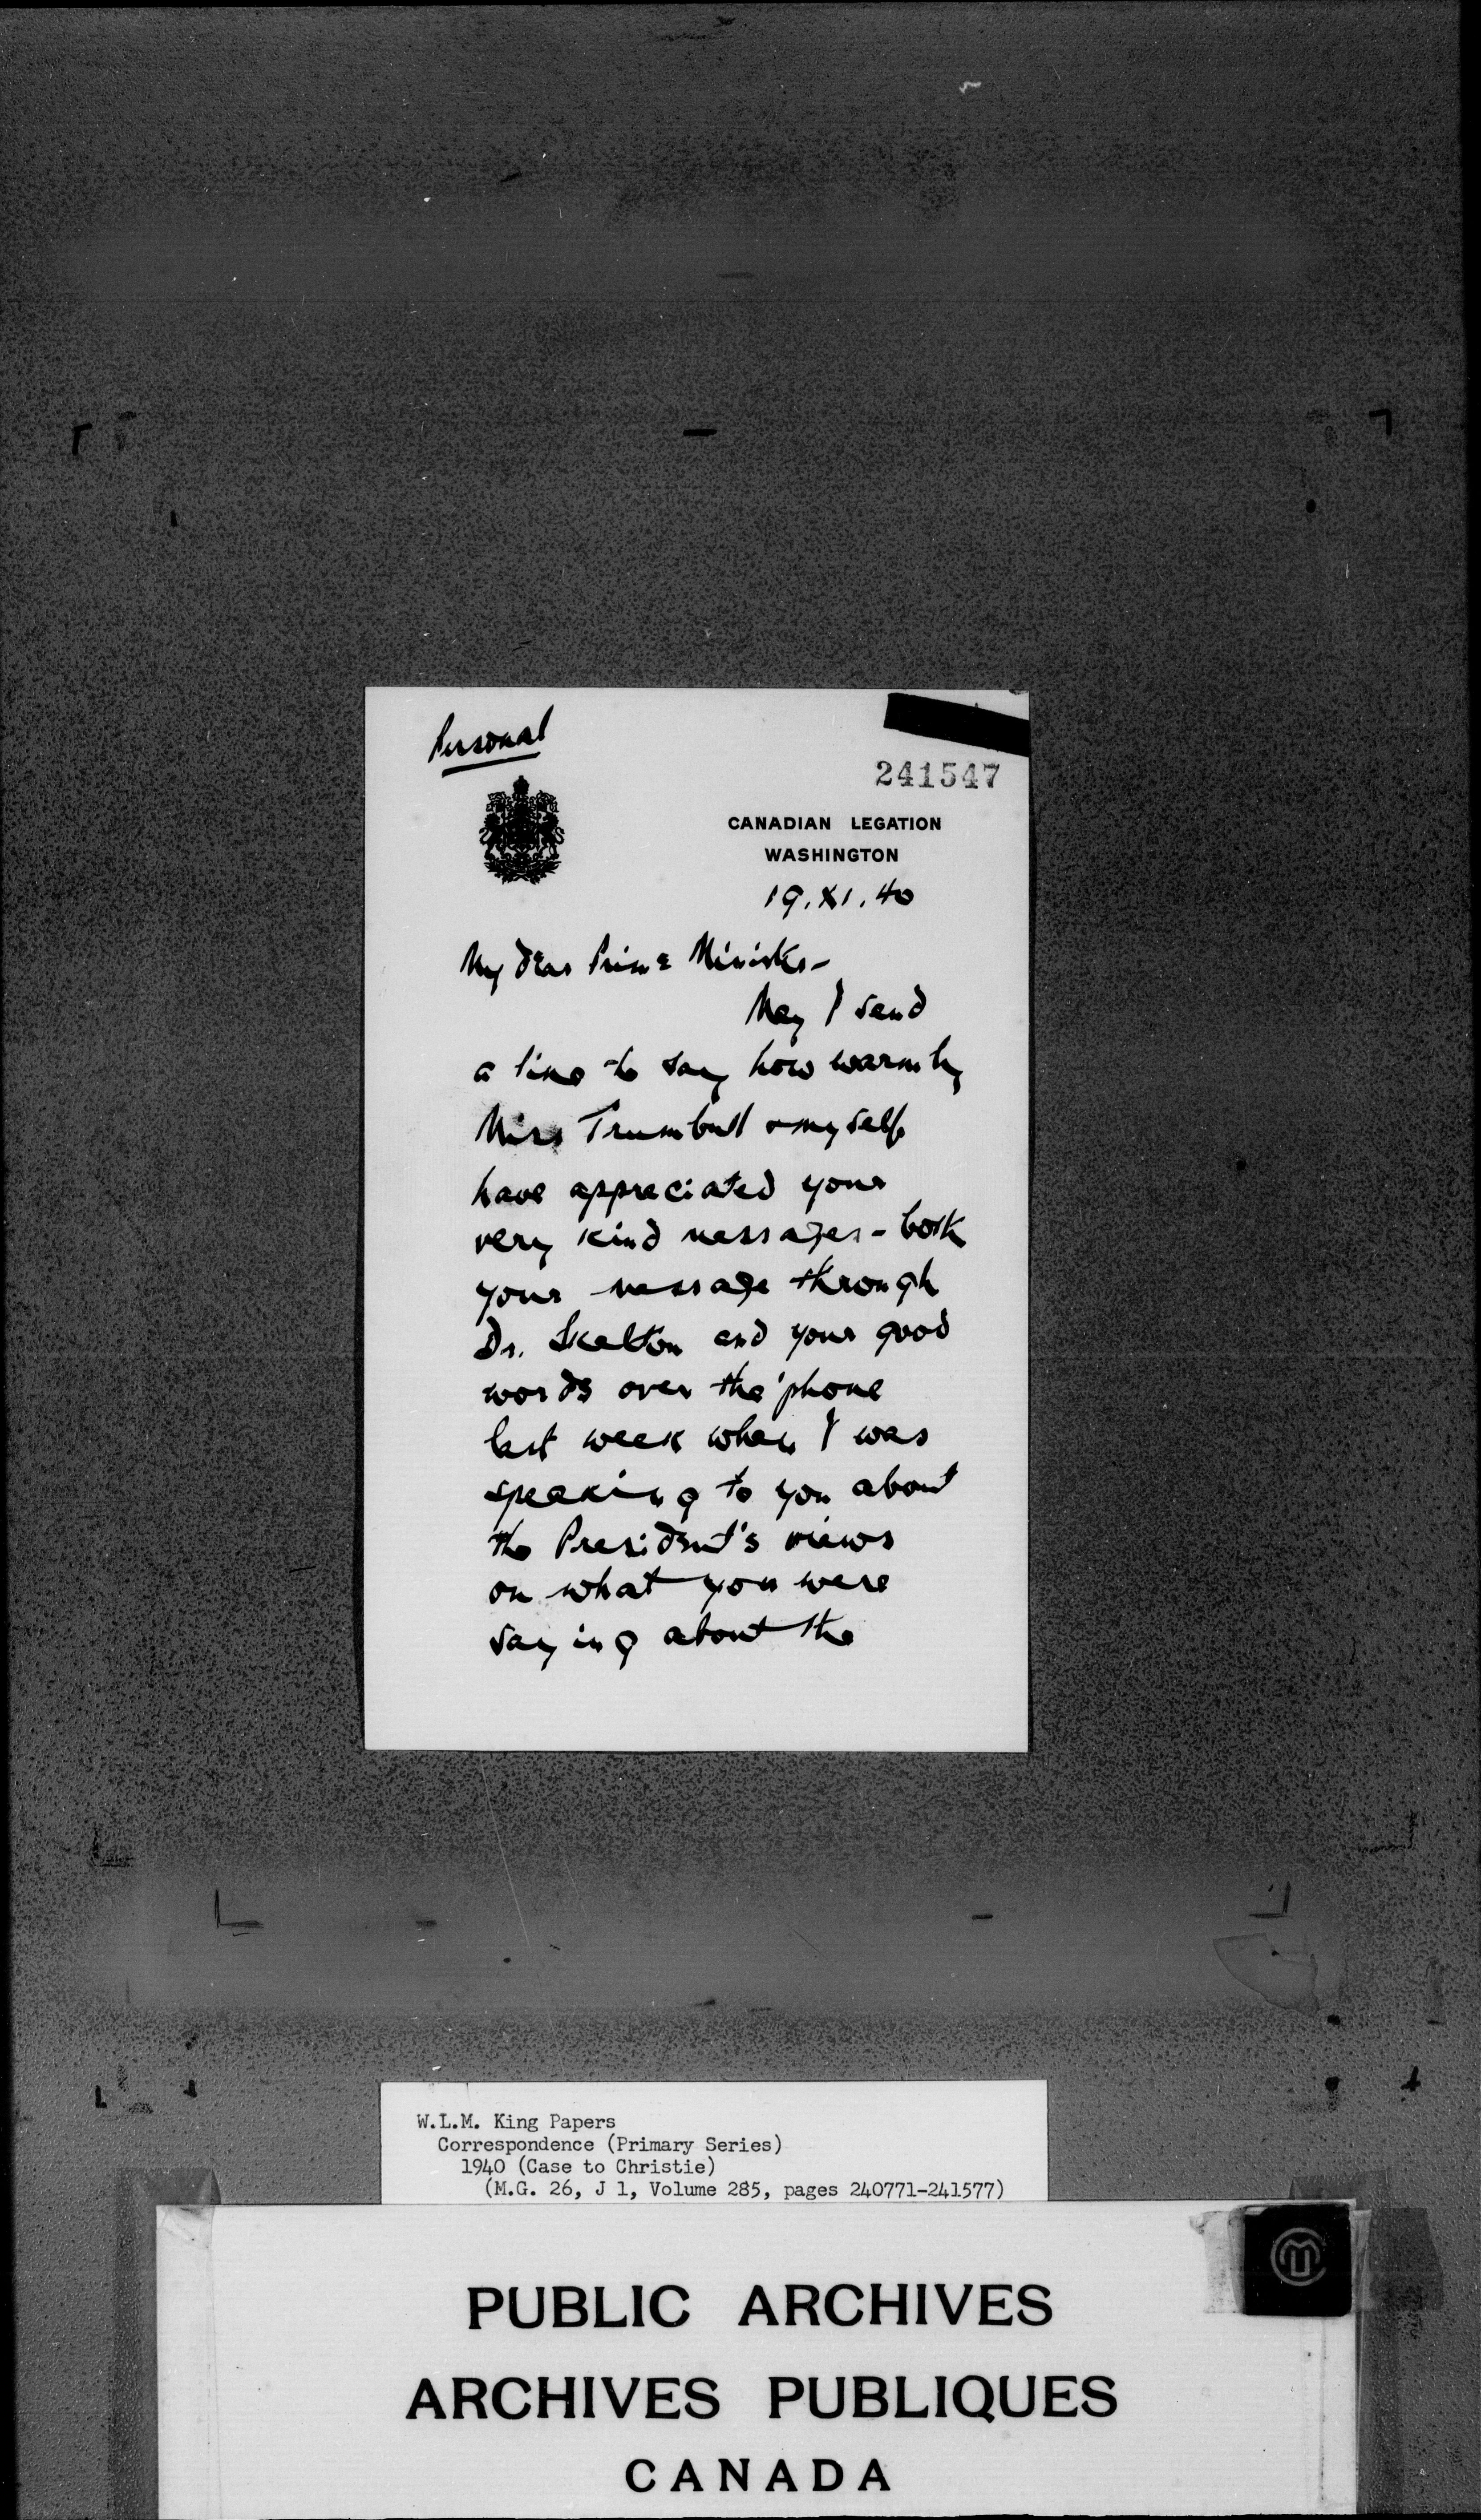 Personal
241547
CANADIAN LEGATION
WASHINGTON
19.XI.40
My dear Prime Minister-
May I send
a line to say how warmly
Miss Trumbull & myself
have appreciated your
very kind messages - both
your message through
Dr. Skelton and your good
words over the 'phone
last week when I was
speaking to you about
the President's views
on what you were
saying about the
W.L.M. King Papers
Correspondence (Primary Series)
1940 (Case to Christie)
(M.G. 26, J 1, Volume 285, pages 240771-241577)
PUBLIC ARCHIVES
ARCHIVES PUBLIQUES
CANADA